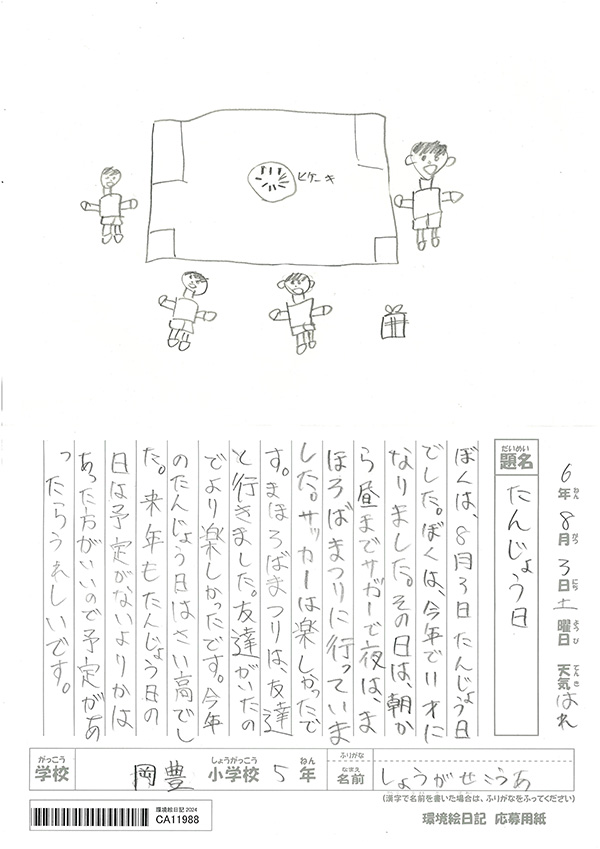 ヒケーキ
6年 8月 3日 土曜日 天気 はれ
ねん がつ にち ようび てんき
だいめい
題名
たんじょう日
ぼくは、8月3日たんじょう日
でした。ぼくは、今年で11才に
なりました。その日は、朝か
ら昼までサガーで夜は、ま
ほろばまつりに行っていま
した。サッカーは楽しかったで
す。まほろばまつりは、友達
と行きました。友達がいたの
でより楽しかったです。今年
のたんじょう日はさい高でし
た。来年もたんじょう日の
日は予定がないよりかは
あった方がいいので予定があ
ったらうれしいです。
がっこう しょうがっこう ねん ふりがな
学校 岡豊 小学校 5年 名前 しょうがせこうあ
なまえ
(漢字で名前を書いた場合は、ふりがなをふってください)
環境絵日記 2024
CA11988
環境絵日記 応募用紙